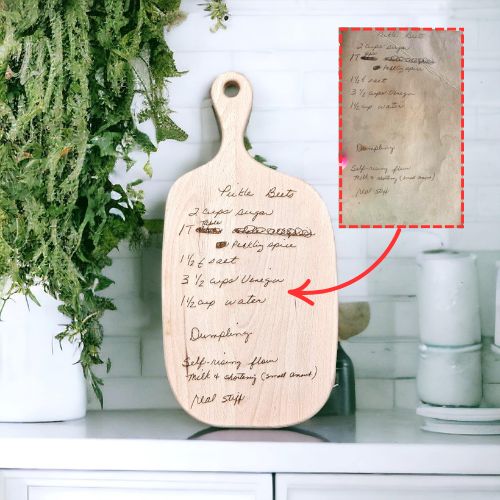 Pickle Beets
2 cups sugar
1T Table
Pickling spice
1½ t salt
3 ½ cups Vinegar
1½ cup water
Dumpling
Self-rising flour
Milk & shortening (small amount)
real stiff
Pickle Beets
2 cups sugar
1T
Pickling spice
1½ t salt
3 ½ cups Vinegar
1½ cup water
Dumpling
Self-rising flour
Milk & shortening (small amount)
real stiff